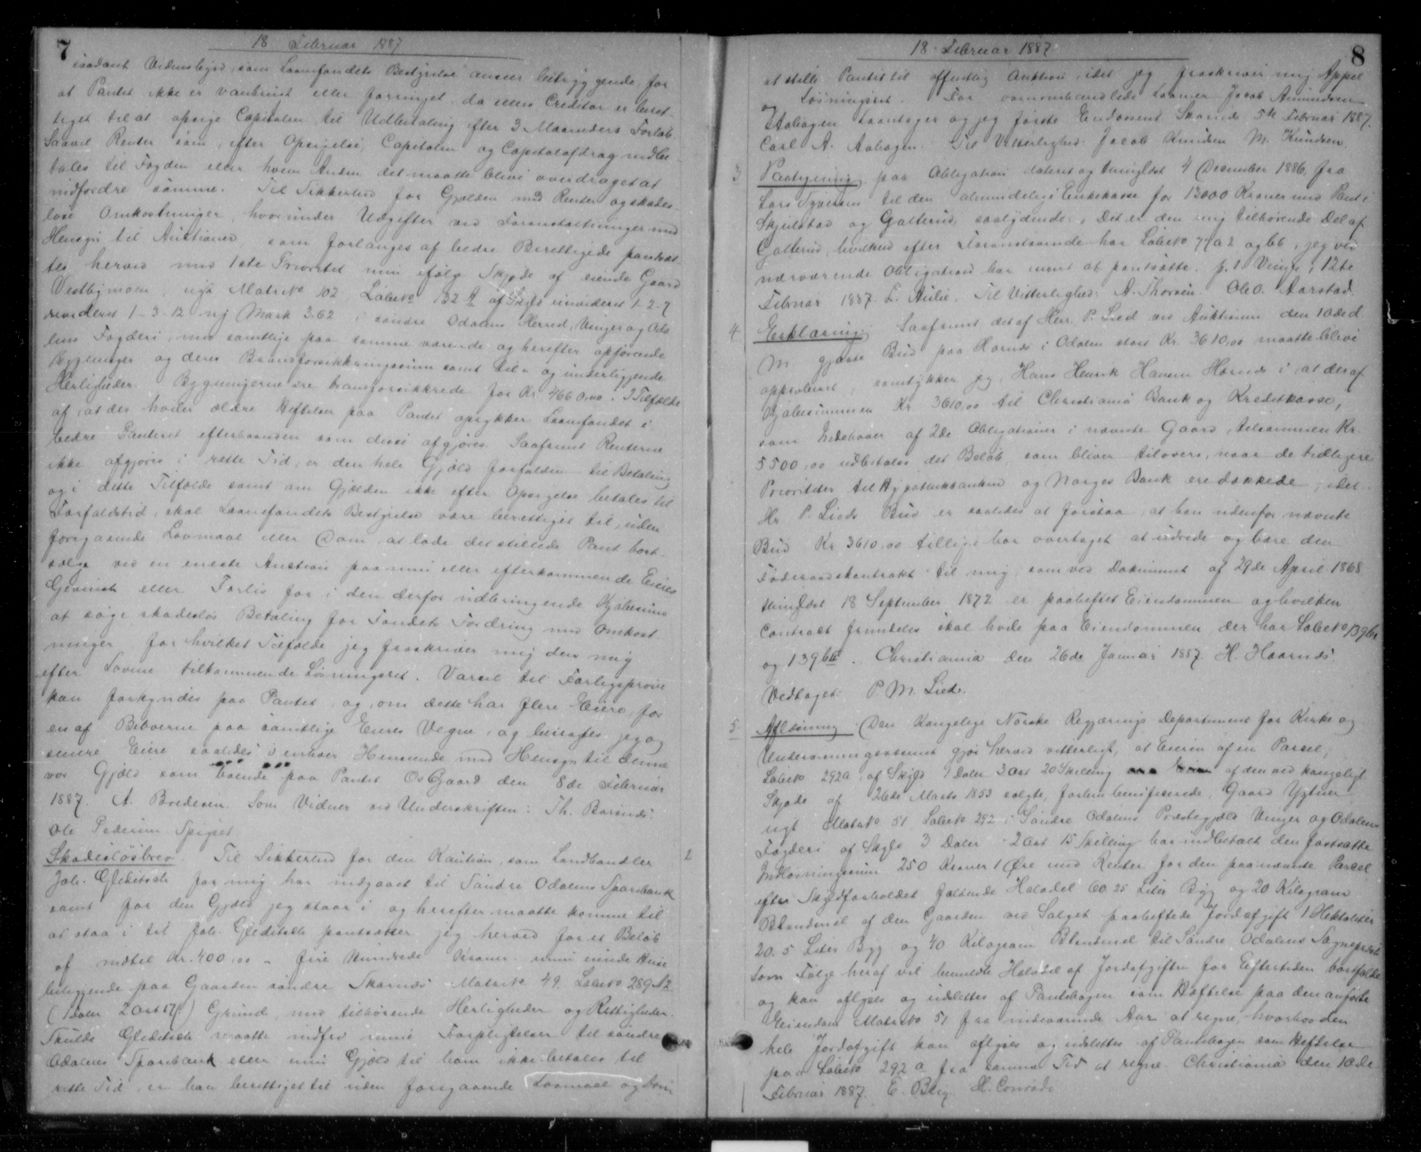 7
18 Februar 1887
isaadant Ordenslejed, som Laanefondets Bestyrelse anseer betryggende for
at Pantet ikke er vanbrugt eller forringet, da ellers Creditor er beret-
tiget til at opsige Capitalen til Udbetaling efter 3 Maaneders Forløb
Saavel Renter som, efter Opsigelse, Capitalen og Capitalafdrag indbe-
tales til Fogden eller hvem Anden det maatte blive overdraget at
indfordre samme. Til Sikkerhed for Gjælden med Renter og skades-
løse Omkostninger, hvorunder Udgifter ved Foranstaltninger med
Hensyn til Auktioner, som forlanges af bedre Berettigede pantsæt-
tes herved med 1ste Prioritet min ifølge Skjøde af eiende Gaard
Vestbymoen, nyt Matr No 102, Løbe No 132 af Skyld urevideret 1-2-7
revideret 1-3-12 ny Mark 3.62 i søndre Odalens Herred, Vinger og Oda-
lens Fogderi, med samtlige paa samme værende og herefter opførende
Bygninger og deres Brandforsikkringssum samt til- og underliggende
Herligheder. Bygningerne ere brandforsikkrede for Kr. 4660,00. I Tilfælde
af, at der hviler ældre Heftelser paa Pantet oprykker Laanefondet i
bedre Panteret efterhaanden som disse afgjøres. Saafremt Renterne
ikke afgjøres i rette Tid, er den hele Gjæld forfalden til Betaling
og i dette Tilfælde samt om Gjælden ikke efter Opsigelse betales til
Forfaldstid, skal Laanefondets Bestyrelse være berettiget til, uden
foregaaende Lovmaal eller Dom, at lade det stillede Pant bort-
sælge ved en eneste Auktion paa min eller efterkommende Eieres
Gevinst eller Forlis for i den derfor udbringende Kjøbesum
at søge skadesløs Betaling for Fondets Fordring med Omkost-
ninger for hvilket Tilfælde jeg fraskriver mig den mig
efter Loven tilkommende Løsningsret. Varsel til Forligsprøve
kan forkyndes paa Pantet, og, om dette har flere Eiere, for
en af Beboerne paa samtlige Eieres Vegne, og ansees jeg og
senere Eiere saaledes i enhver Henseende med Hensyn til denne
vor Gjæld som boende paa Pantet Os Gaard den 8de Februar
1887. A. Bredesen. Som Vidner ved Underskriften: Th. Barsnes.
Ole Pedersen Spigset.
Skadesløsbrev. Til Sikkerhed for den Kaution, som Landhandler 2
Joh. Gleditsch for mig har indgaaet til Søndre Odalens Sparebank
samt for den Gjæld jeg staar i og herefter maatte komme til
at staa i til Joh. Gleditsch pantsætter jeg herved for et Beløb
af indtil Kr. 400.00 – fire Hundrede Kroner mine eiende Huse
beliggende paa Gaarden søndre Skarnes Matr No 49, Løbe No 289
(1 Daler 2 Ort) Grund, med tilhørende Herligheder og Rettigheder.
Skulde Gleditsch maatte indfri mine Forpligtelser til søndre
Odalens Sparebank eller min Gjæld til ham ikke betales til
rette Tid er han berettiget til uden foregaaende Lovmaal og Dom
8
18 Februar 1887
at stille Pantet til offentlig Auktion, idet jeg fraskriver mig Appel
og Løsningsret. For ovenomhandlede Laaner Jacob Amundsen
Aabogen laantager og jeg første Eiendomsret Skarnes 5te Februar 1887.
Carl A. Aabogen. Til Vitterlighed: Jacob Knudsen M. Knudsen.
3 Panteygning paa Obligation dateret og tinglyst 4 December 1886 fra
Lars Syversen til den almindelige Enkekasse for 12000 Kroner med Pant i
Skjulstad og Galterud saalydende: Det er den mig tilhørende Del af
Galterud, hvilken efter Foranstaaende har Løbe No 77 a 2 og bb, jeg ved
nærværende Obligation har ment at pantsætte. p.t. Vinger, 12te
Februar 1887. L. Aulie. Til Vitterlighed: A. Thoresen. Ole O. Aarstad.
4 Erklæring. Saafremt det af Herr P. Lied ved Auktionen den 10de d.
M. gjorte Bud paa Hornes i Odalen stort Kr. 3610,00 maatte blive
approberet, samtykker jeg, Hans Henrik Hansen Hornes i, at der af
Kjøbesummen Kr 3610,00 til Christiania Bank og Kreditkasse,
som Ihændehaver af 2de Obligationer i nævnte Gaard, tilsammen Kr.
5500,00 udbetales det Beløb som bliver tilovers, naar de tidligere
Prioriteter til Hypothekbanken og Norges Bank ere dækkede, idet
Hr P. Lieds Bud er saaledes at forstaa, at han udenfor nævnte
Bud Kr 3610.00 tillige har overtaget at udrede og bære den
Føderaadskontrakt til mig, som ved Dokument af 29de April 1868
tinglæst 18 September 1872 er paaheftet Eiendommen og hvilken
Contract fremdeles skal hvile paa Eiendommen, der har Løbe No 139
og 139. Christiania den 26de Januar 1887. H. Haarnes.
Vedtaget P. M. Lied.
5 Afløsning. Den Kongelige Norske Regjerings Departement for Kirke og
Undervisningsvæsenet gjør herved vitterligt, at Eieren af en Parcel,
Løbe No 292a af Skyld 1 Daler 3 Ort 20 Skilling af den ved kongeligt
Skjøde af 26de Marts 1853 solgte, forhen beneficerede, Gaard Ygtun
nyt Matr No 51 Løbe No 292 i Søndre Odalens Præstegjæld Vinger og Odalens
Fogderi af Skyld 3 Daler 2 Ort 15 Skilling har indbetalt den fastsatte
Indløsningssum 250 Kroner 1 Øre med Renter for den paa nævnte Parcel
efter Skyldforholdet faldende Halvdel 60.25 Liter Byg og 20 Kilogram
Blandmel af den Gaarden ved Salget paaheftede Jordafgift 1 Hektoliter
20.5 Liter Byg og 40 Kilogram Blandmel til Søndre Odalens Sognepræst
Som Følge heraf vil bemeldte Halvdel af Jordafgiften for Eftertiden bortfalde
og kan aflyses og udslettes af Pantebogen som Heftelse paa den anførte
Eiendom Matr No 51 fra indeværende Aar at regne, hvorhos den
hele Jordafgift kan aflyses og udslettes af Pantebogen som Heftelse
paa Løbe No 292 a fra samme Tid at regne. Christiania den 10de
Februar 1887. E. Berg. H. Conradi